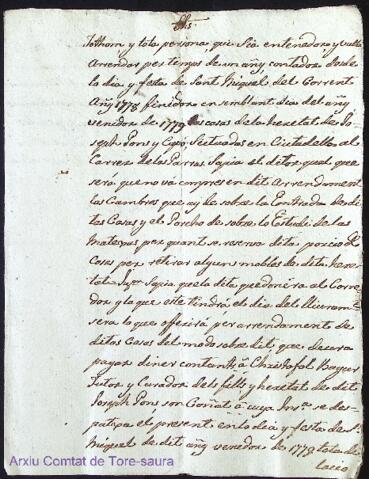 Jhs
Tothom y tota persona, que sia entenedora y vulla
Arrendar per temps de un añy contador desde
lo dia y festa de Sant Miquel del Corrent
Añy 1778 finidor en semblant dia del añy
venidor de 1779 las casas de la heretat de Jo-
seph Pons y Situadas en Ciutadella al
Carrer de las Parras Sapia el dit
será que no va compres en dit Arrendament
las Cambras que ay de sobre la Entrada de di-
tas Casas y el Porcho de sobre lo Estudi de las
Matexas per quant se reserva dita porció de
Casas per retirar alguns mobles de dita here-
tat Sapia que la dita que donera al Corre-
dor y la que este tindrá el dia del lliurament
sera lo que oferirá per arrendament de
ditas Casas del modo sobre dit, que deurá
pagar diner contant á Christofol
Tutor y Curador dels fills y heretat de dit
Joseph Pons son Coñat á cuya se des-
patxa el present en lo dia y festa de St
Miquel de dit añy venidor de 1779 tota di-
lacio
Arxiu Comtat de Tore-saura